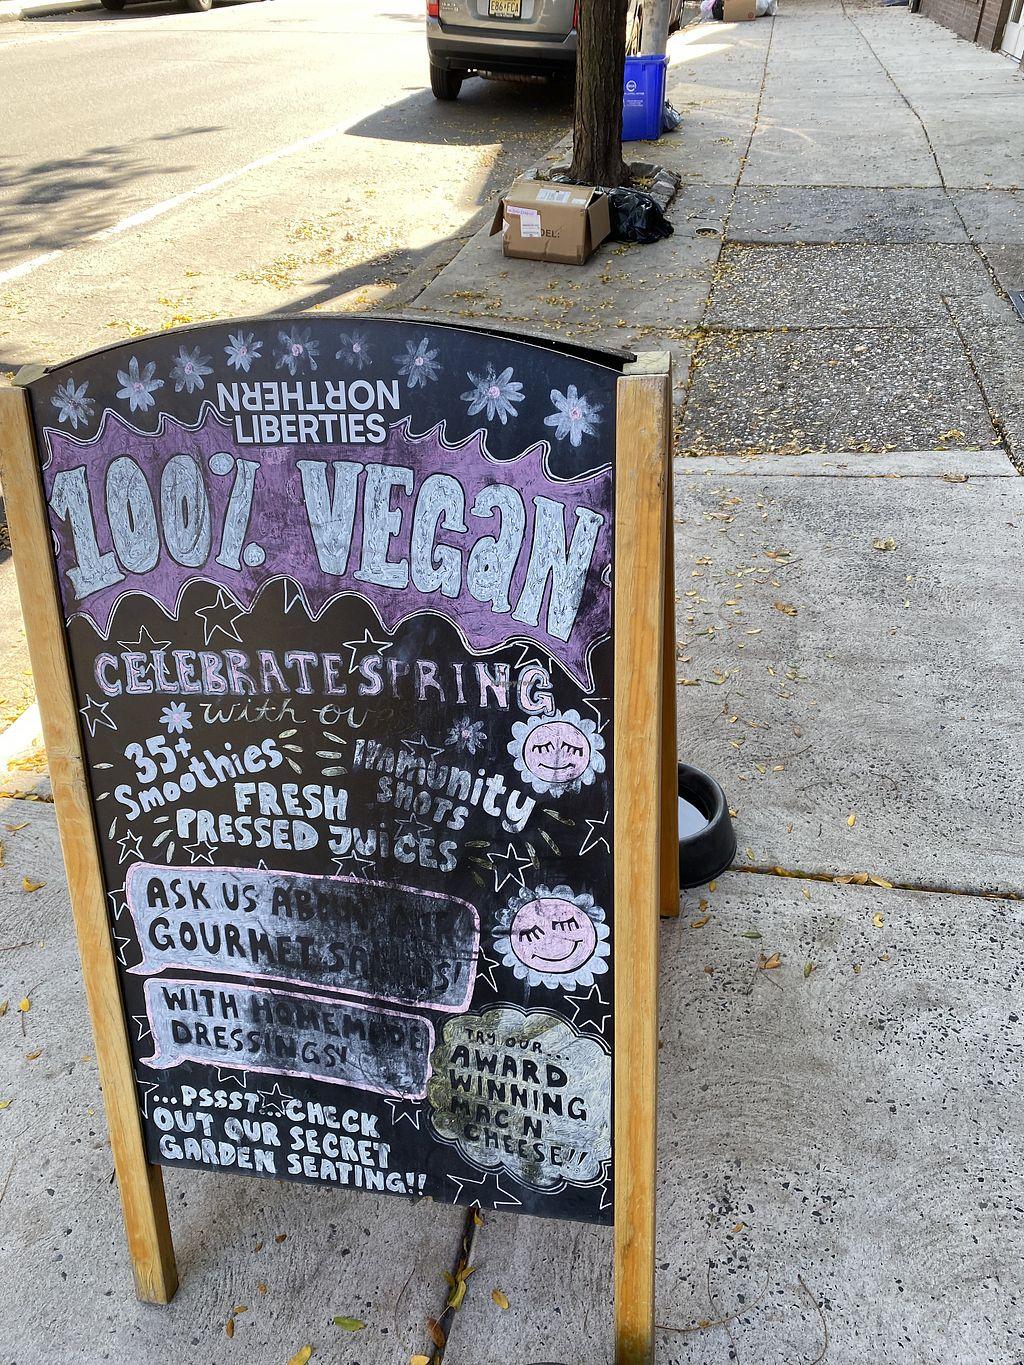 E86 FCA
DEL:
NORTHERN
LIBERTIES
100% VEGAN
CELEBRATE SPRING
with our
35+
Smoothies
IMMUNITY
SHOTS
FRESH
PRESSED JUICES
ASK US ABOUT OUR
GOURMET SALADS!
WITH HOMEMADE
DRESSINGS!
TRY OUR...
AWARD
WINNING
MAC N'
CHEESE!!
...PSSST...CHECK
OUT OUR SECRET
GARDEN SEATING!!